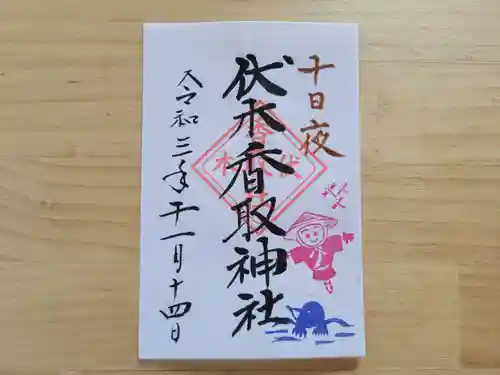 十日夜
伏木香取神社
令和三年十一月十四日